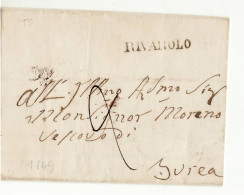 RIVAROLO
All' Ill.mo R.dmo Sig
Monsignor Moreno
Vescovo di
Ivrea